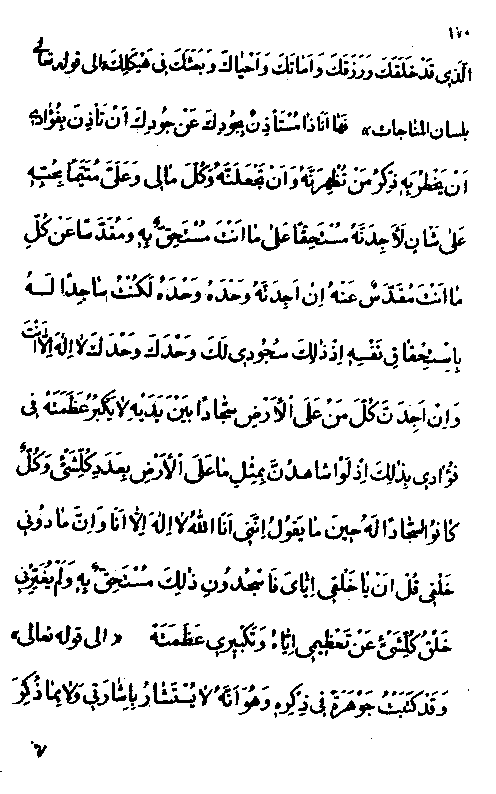 ١٧٠
الّذی قَدْ خَلَقَكَ وَرَزَقَكَ وَاَمَاتَكَ وَاَحْیَاكَ وَبَعَثَكَ فِی هَیْكَلِكَ الی قوله تعالی
بلسان المناجات» فَهَا اَنَاذَا مُسْتَأْذِنٌ بِجُودِكَ عَنْ جُودِكَ اَنْ تَأْذَنَ بِفُؤَادِی
اَنْ یَخْطُرَ بِهِ ذِكْرُ مَنْ تُظْهِرَنَّهُ وَاَنْ تَجْعَلَنَّهُ وَكُلَّ مَالِی وَعَلَیَّ مُتَیَّمًا بِحُبِّهِ
عَلی شَأنٍ لَاَجِدَنَّهُ مُسْتَحِقًّا عَلی مَا اَنْتَ مُسْتَحِقٌّ بِهِ وَمُقَدَّسًا عَنْ كُلِّ
مَا اَنْتَ مُقَدَّسٌ عَنْهُ اِنْ اَجِدَنَّهُ وَحْدَهُ وَحْدَهُ لَكُنْتُ سَاجِدًا لَهُ
بِاسْتِحْقَاقِ نَفْسِهِ اِذْ ذلِكَ سُجُودِی لَكَ وَحْدَكَ وَحْدَكَ لَا اِلهَ اِلَّا اَنْتَ
وَاِنْ اَجِدَنَّ كُلَّ مَنْ عَلَی الْاَرْضِ سُجَّادًا بَیْنَ یَدَیْهِ لَا یَكْبُرُ عَظَمَتُهُ فِی
فُؤَادِی بِذلِكَ اِذْ لَوْ اُشَاهِدَنَّ بِمِثْلِ مَا عَلَی الْاَرْضِ بِعَدَدِ كُلِّشَیْءٍ وَكُلٌّ
كَانُوا سُجَّادًا لَهُ حِینَ مَا یَقُولُ اِنَّنِی اَنَا اللّهُ لَا اِلهَ اِلَّا اَنَا وَاِنَّ مَا دُونِی
خَلْقِی قُلْ اَنْ یَا خَلْقِی اِیَّایَ فَاسْجُدُونِ ذلِكَ مُسْتَحِقٌّ بِهِ وَلَمْ یُغَیِّرْنِی
خَلْقُ كُلِّشَیْءٍ عَنْ تَعْظِیمِی اِیَّاهُ وَتَكْبِیرِی عَظَمَتَهُ «الی قوله تعالی»
وَقَدْ كَتَبْتُ جَوْهَرَةً فِی ذِكْرِهِ وَهُوَ اَنَّهُ لَا یُسْتَشَارُ بِاِشَارَتِی وَلَا بِمَا ذُكِرَ